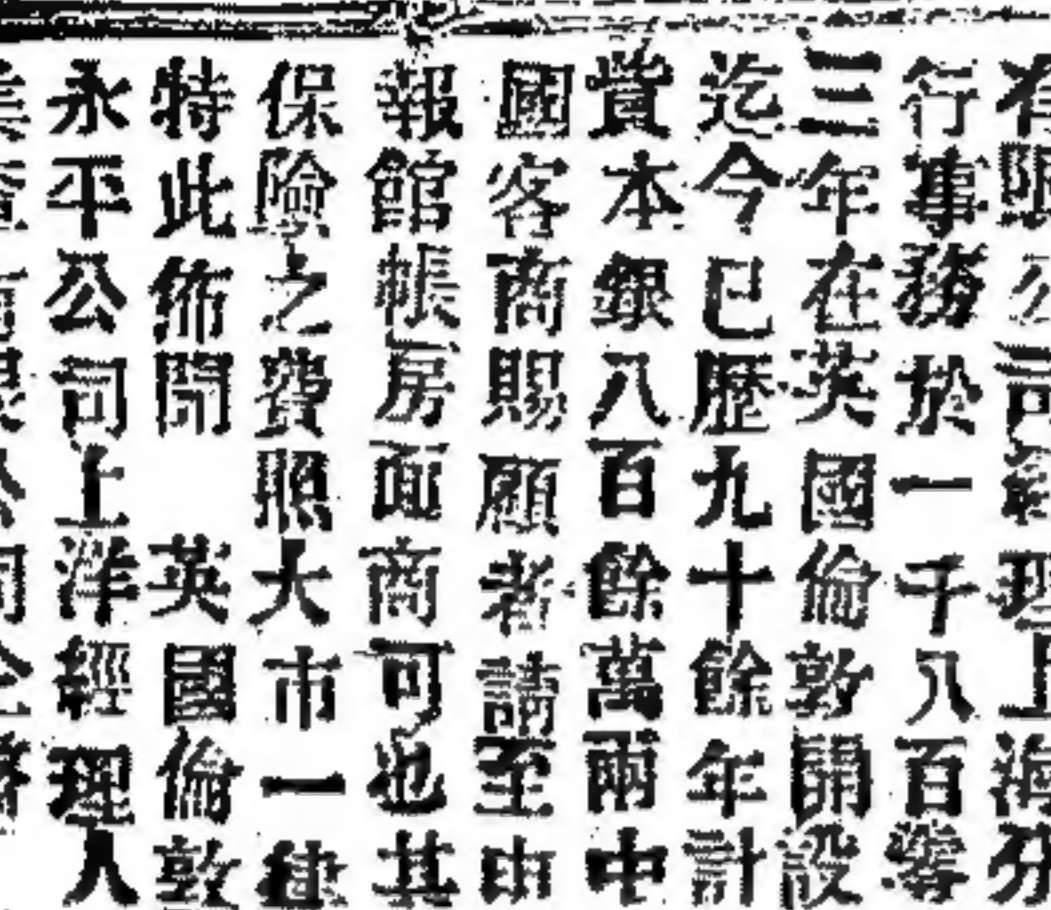 有限公司經理上海分
行事務於一千八百零
三年在英國倫敦開設
迄今已歷九十餘年計
貲本銀八百餘萬兩中
國客商賜顧者請至申
報館帳房面商可也其
保險之費照大市一律
特此佈聞 英國倫敦
永平公司上洋經理人